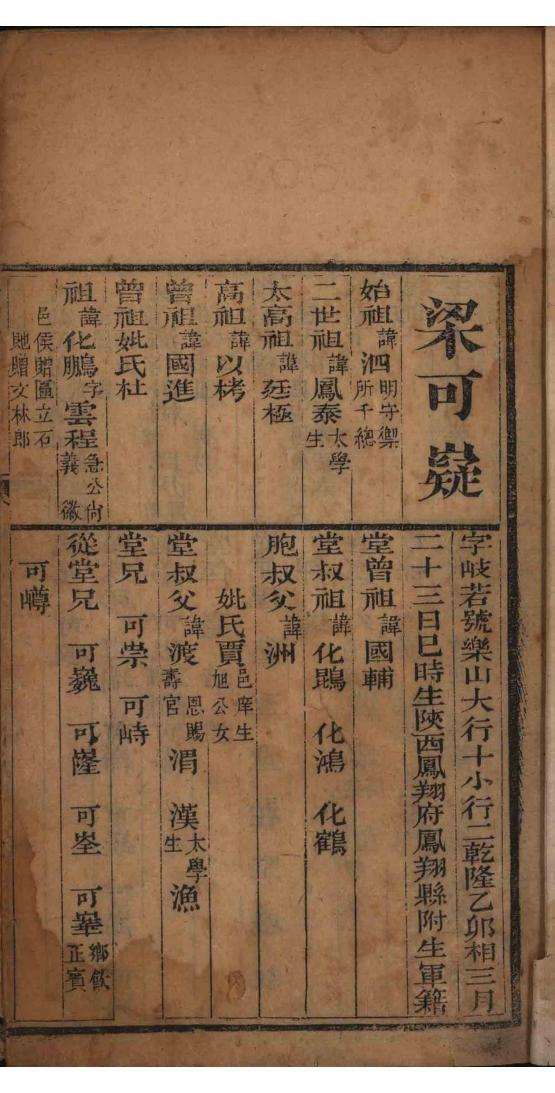 梁可嶷
字岐若號樂山大行十小行二乾隆乙卯相三月
二十三日巳時生陝西鳳翔府鳳翔縣附生軍籍
始祖諱泗明守禦所千總
二世祖諱鳳泰太學生
太高祖諱廷極
高祖諱以栲
曾祖諱國進
曾祖妣氏杜
祖諱化鵬字雲程急公尚義徽
邑侯贈匾立石
貤贈文林郎
堂曾祖諱國輔
堂叔祖諱化鵾 化鴻 化鶴
胞叔父諱洲
妣氏賈邑庠生旭公女
堂叔父諱渡恩賜壽官 渭 漢太學生 漁
堂兄 可崇 可峙
從堂兄 可巍 可㟅 可峑 可嶨鄉飲正賓
可嶟